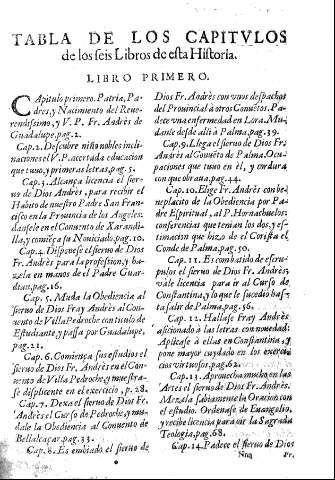 TABLA DE LOS CAPITVLOS
de los seis Libros de esta Historia.
LIBRO PRIMERO.
CApitulo primero. Patria, Pa-
dres, y Nacimiento del Reve-
rendissimo, y V. P. Fr. Andrès de
Guadalupe, pag. 2.
Cap. 2. Descubre niño nobles incli-
naciones el V. P. acertada educacion
que tuvo, y primeras letras, pag. 5.
Cap. 3. Alcança licencia el sier-
vo de Dios Andrès, para recibir el
Habito de nuestro Padre San Fran-
cisco en la Provincia de los Angeles:
dansele en el Convento de Xarandi-
lla, y comiẽça su Noviciado, pag. 10.
Cap. 4. Dispònese el siervo de Dios
Fr. Andrès para la profession, y ha-
zela en manos de el Padre Guar-
dian, pag. 16.
Cap. 5. Muda la Obediencia al
siervo de Dios Fray Andrès al Con-
vento de Villa Pedroche con titulo de
Estudiante, y passa por Guadalupe,
pag. 21.
Cap. 6. Comiença sus estudios el
siervo de Dios Fr. Andrès en el Con-
vento de Villa Pedroche, y muestra-
se displicente en el exercicio, p. 28.
Cap. 7. Dexa el siervo de Dios Fr.
Andrès el Curso de Pedroche, y mu-
dale la Obediencia al Convento de
Bellalcaçar, pag. 33.
Cap. 8. Es embiado el siervo de
Dios Fr. Andrès con unos despachos
del Provincial à otros Convẽtos. Pa-
dece vna enfermedad en Lora. Mu-
danle desde alli à Palma, pag. 39.
Cap. 9. Llega el siervo de Dios Fr.
Andrès al Convẽto de Palma. Ocu-
paciones que tuvo en èl, y cordura
con que obrava, pag. 44.
Cap. 10. Elige Fr. Andrès con be-
neplacito de la Obediencia por Pa-
dre Espiritual, al P. Hornachuelos:
conferencias que tenian los dos, y es-
timacion que hizo de el Corista el
Conde de Palma, pag. 50.
Cap. 11. Es combatido de escru-
pulos el siervo de Dios Fr. Andrès,
vàle licencia para ir al Curso de
Constantina, y lo que le sucedio has-
ta salir de Palma, pag. 56.
Cap. 12. Hallase Fray Andrès
aficionado à las letras con novedad:
Aplicase à ellas en Constantina, y
pone mayor cuydado en los exerci-
cios virtuosos, pag. 62.
Cap. 13. Aprovecha mucho en las
Artes el siervo de Dios Fr. Andrès.
Mezcla sabiamente la Oracion con
el estudio. Ordenase de Euangelio,
y recibe licencia para oir la Sagrada
Teologia, pag. 68.
Cap. 14. Padece el siervo de Dios
Nnn Fr.